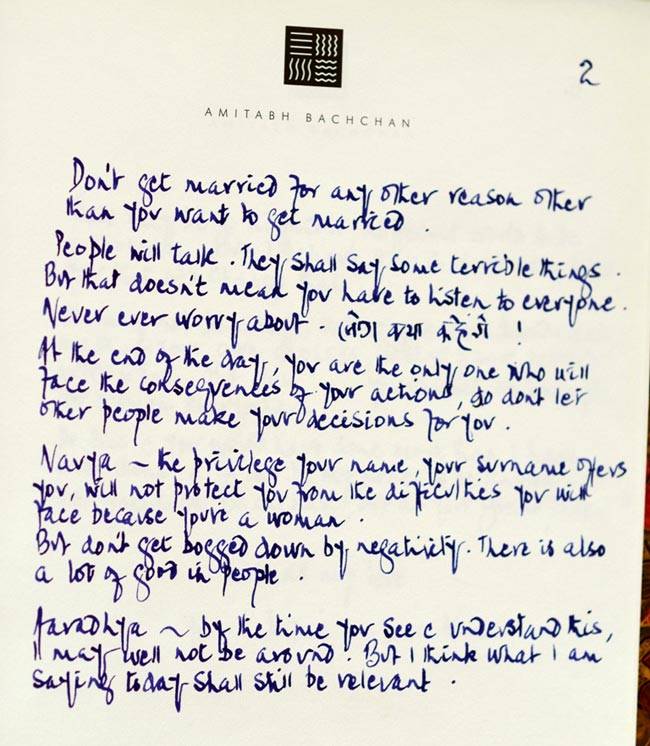 2
AMITABH BACHCHAN
Don't get married for any other reason other
than you want to get married.
People will talk. They shall say some terrible things.
But that doesn't mean you have to listen to everyone.
Never ever worry about - लोग क्या कहेंगे !
At the end of the day, you are the only one who will
face the consequences of your actions, so don't let
other people make your decisions for you.
Navya ~ the privilege your name, your surname offers
you, will not protect you from the difficulties you will
face because you're a woman.
But don't get bogged down by negativity. There is also
a lot of good in people.
Aaradhya ~ by the time you see c understand this,
I may well not be around. But I think what I am
saying today shall still be relevant.